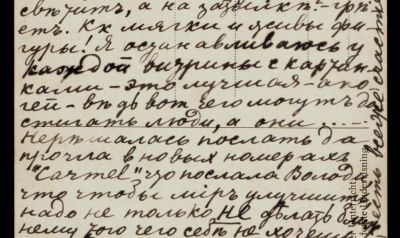 свѣтитъ, а на завялкѣ - грѣ-
етъ. Кк мягки и живы фи-
гуры! Я останавливаюсь у
каждой витрины с картин-
ками - это лучшая - апо-
гей - вѣдь вот чего могутъ до-
стигать люди, а они .....
Нерѣшалась послать да
прочла в новыхъ номерахъ
"Carmel", что послала Володѣ
что чтобы міръ улучшить
надо не только не дѣлать
нему того чего себѣ не хочешь
есть везде счастье